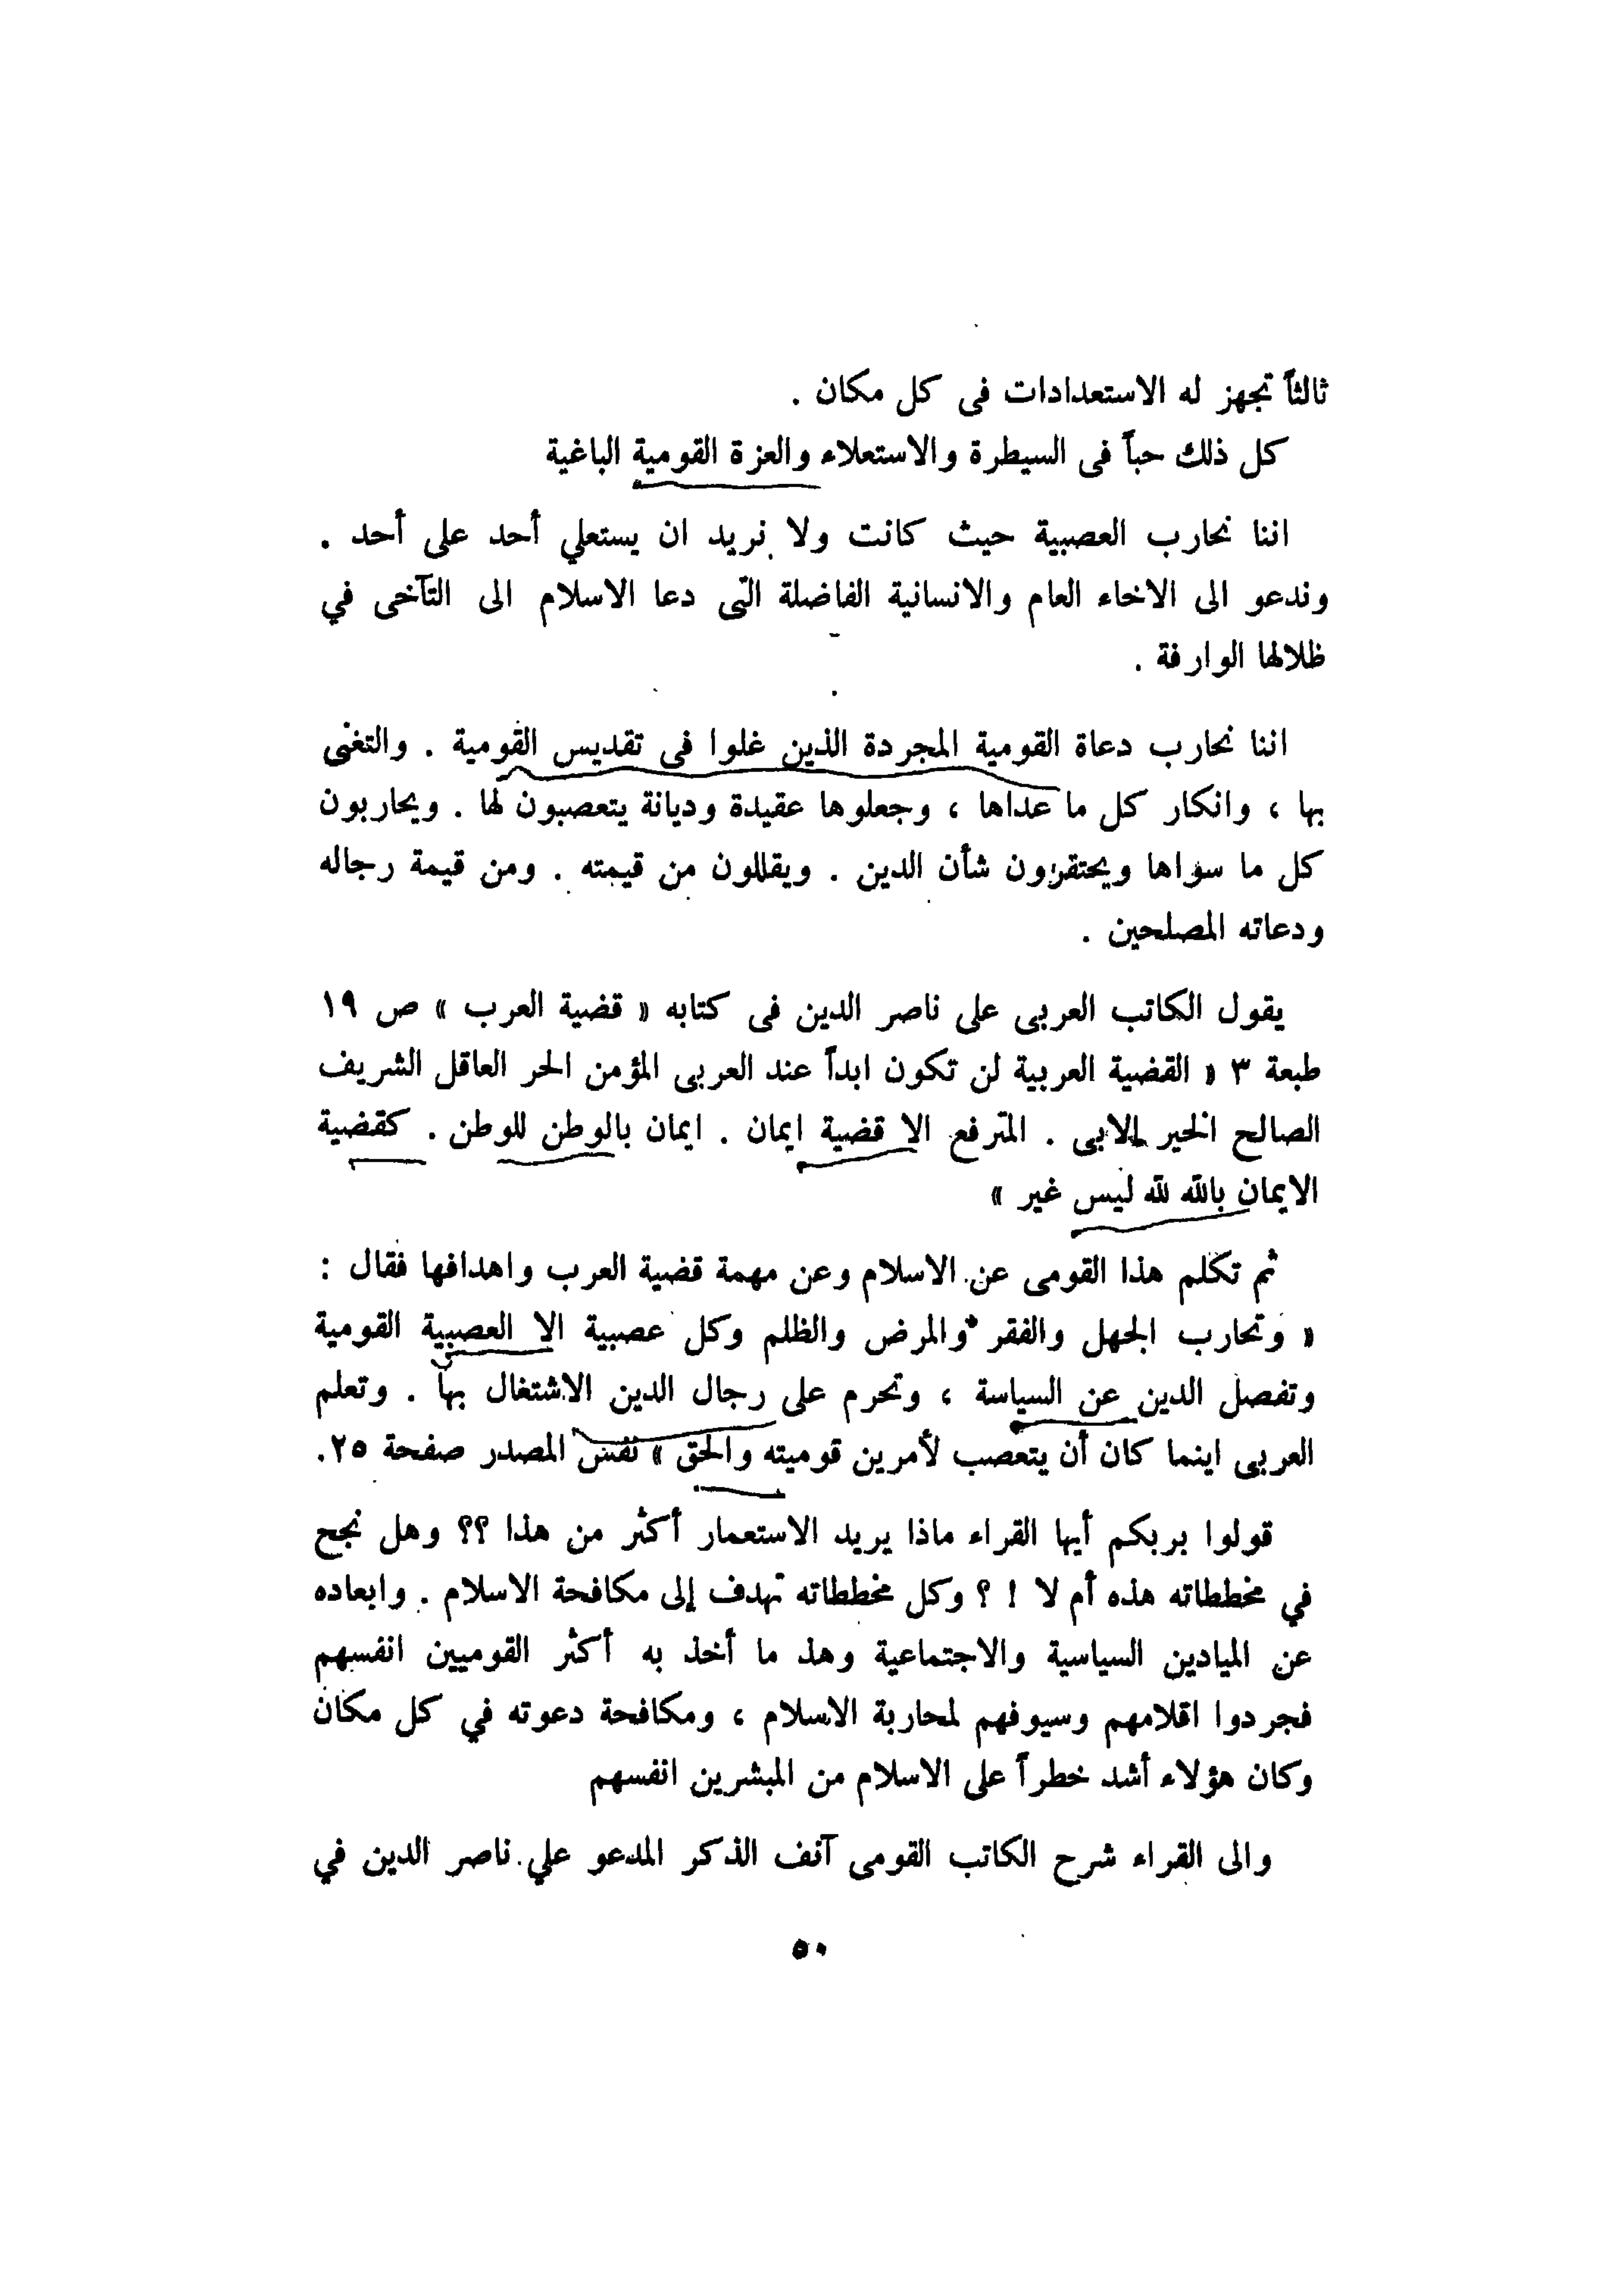 ثالثاً تجهز له الاستعدادات فى كل مكان .
كل ذلك حباً فى السيطرة والاستعلاء والعزة القومية الباغية
اننا نحارب العصبية حيث كانت ولا نريد ان يستعلي أحد على أحد .
وندعو الى الاخاء العام والانسانية الفاضلة التى دعا الاسلام الى التآخى في
ظلالها الوارفة .
اننا نحارب دعاة القومية المجردة الذين غلوا فى تقديس القومية . والتغنى
بها ، وانكار كل ما عداها ، وجعلوها عقيدة وديانة يتعصبون لها . ويحاربون
كل ما سواها ويحتقرون شأن الدين . ويقللون من قيمته . ومن قيمة رجاله
ودعاته المصلحين .
يقول الكاتب العربى على ناصر الدين فى كتابه « قضية العرب » ص ١٩
طبعة ٣ « القضية العربية لن تكون ابداً عند العربى المؤمن الحر العاقل الشريف
الصالح الخير الابى . المترفع الا قضية ايمان . ايمان بالوطن للوطن . كقضية
الايمان بالله لله ليس غير »
ثم تكلم هذا القومى عن الاسلام وعن مهمة قضية العرب واهدافها فقال :
« وتحارب الجهل والفقر والمرض والظلم وكل عصبية الا العصبية القومية
وتفصل الدين عن السياسة ، وتحرم على رجال الدين الاشتغال بها . وتعلم
العربى اينما كان أن يتعصب لأمرين قوميته والحق » نفس المصدر صفحة ٢٥.
قولوا بربكم أيها القراء ماذا يريد الاستعمار أكثر من هذا ؟؟ وهل نجح
في مخططاته هذه أم لا ! ؟ وكل مخططاته تهدف إلى مكافحة الاسلام . وابعاده
عن الميادين السياسية والاجتماعية وهذ ما أخذ به أكثر القوميين انفسهم
فجردوا اقلامهم وسيوفهم لمحاربة الاسلام ، ومكافحة دعوته في كل مكان
وكان هؤلاء أشد خطراً على الاسلام من المبشرين انفسهم
والى القراء شرح الكاتب القومى آنف الذكر المدعو علي ناصر الدين في
٥٠